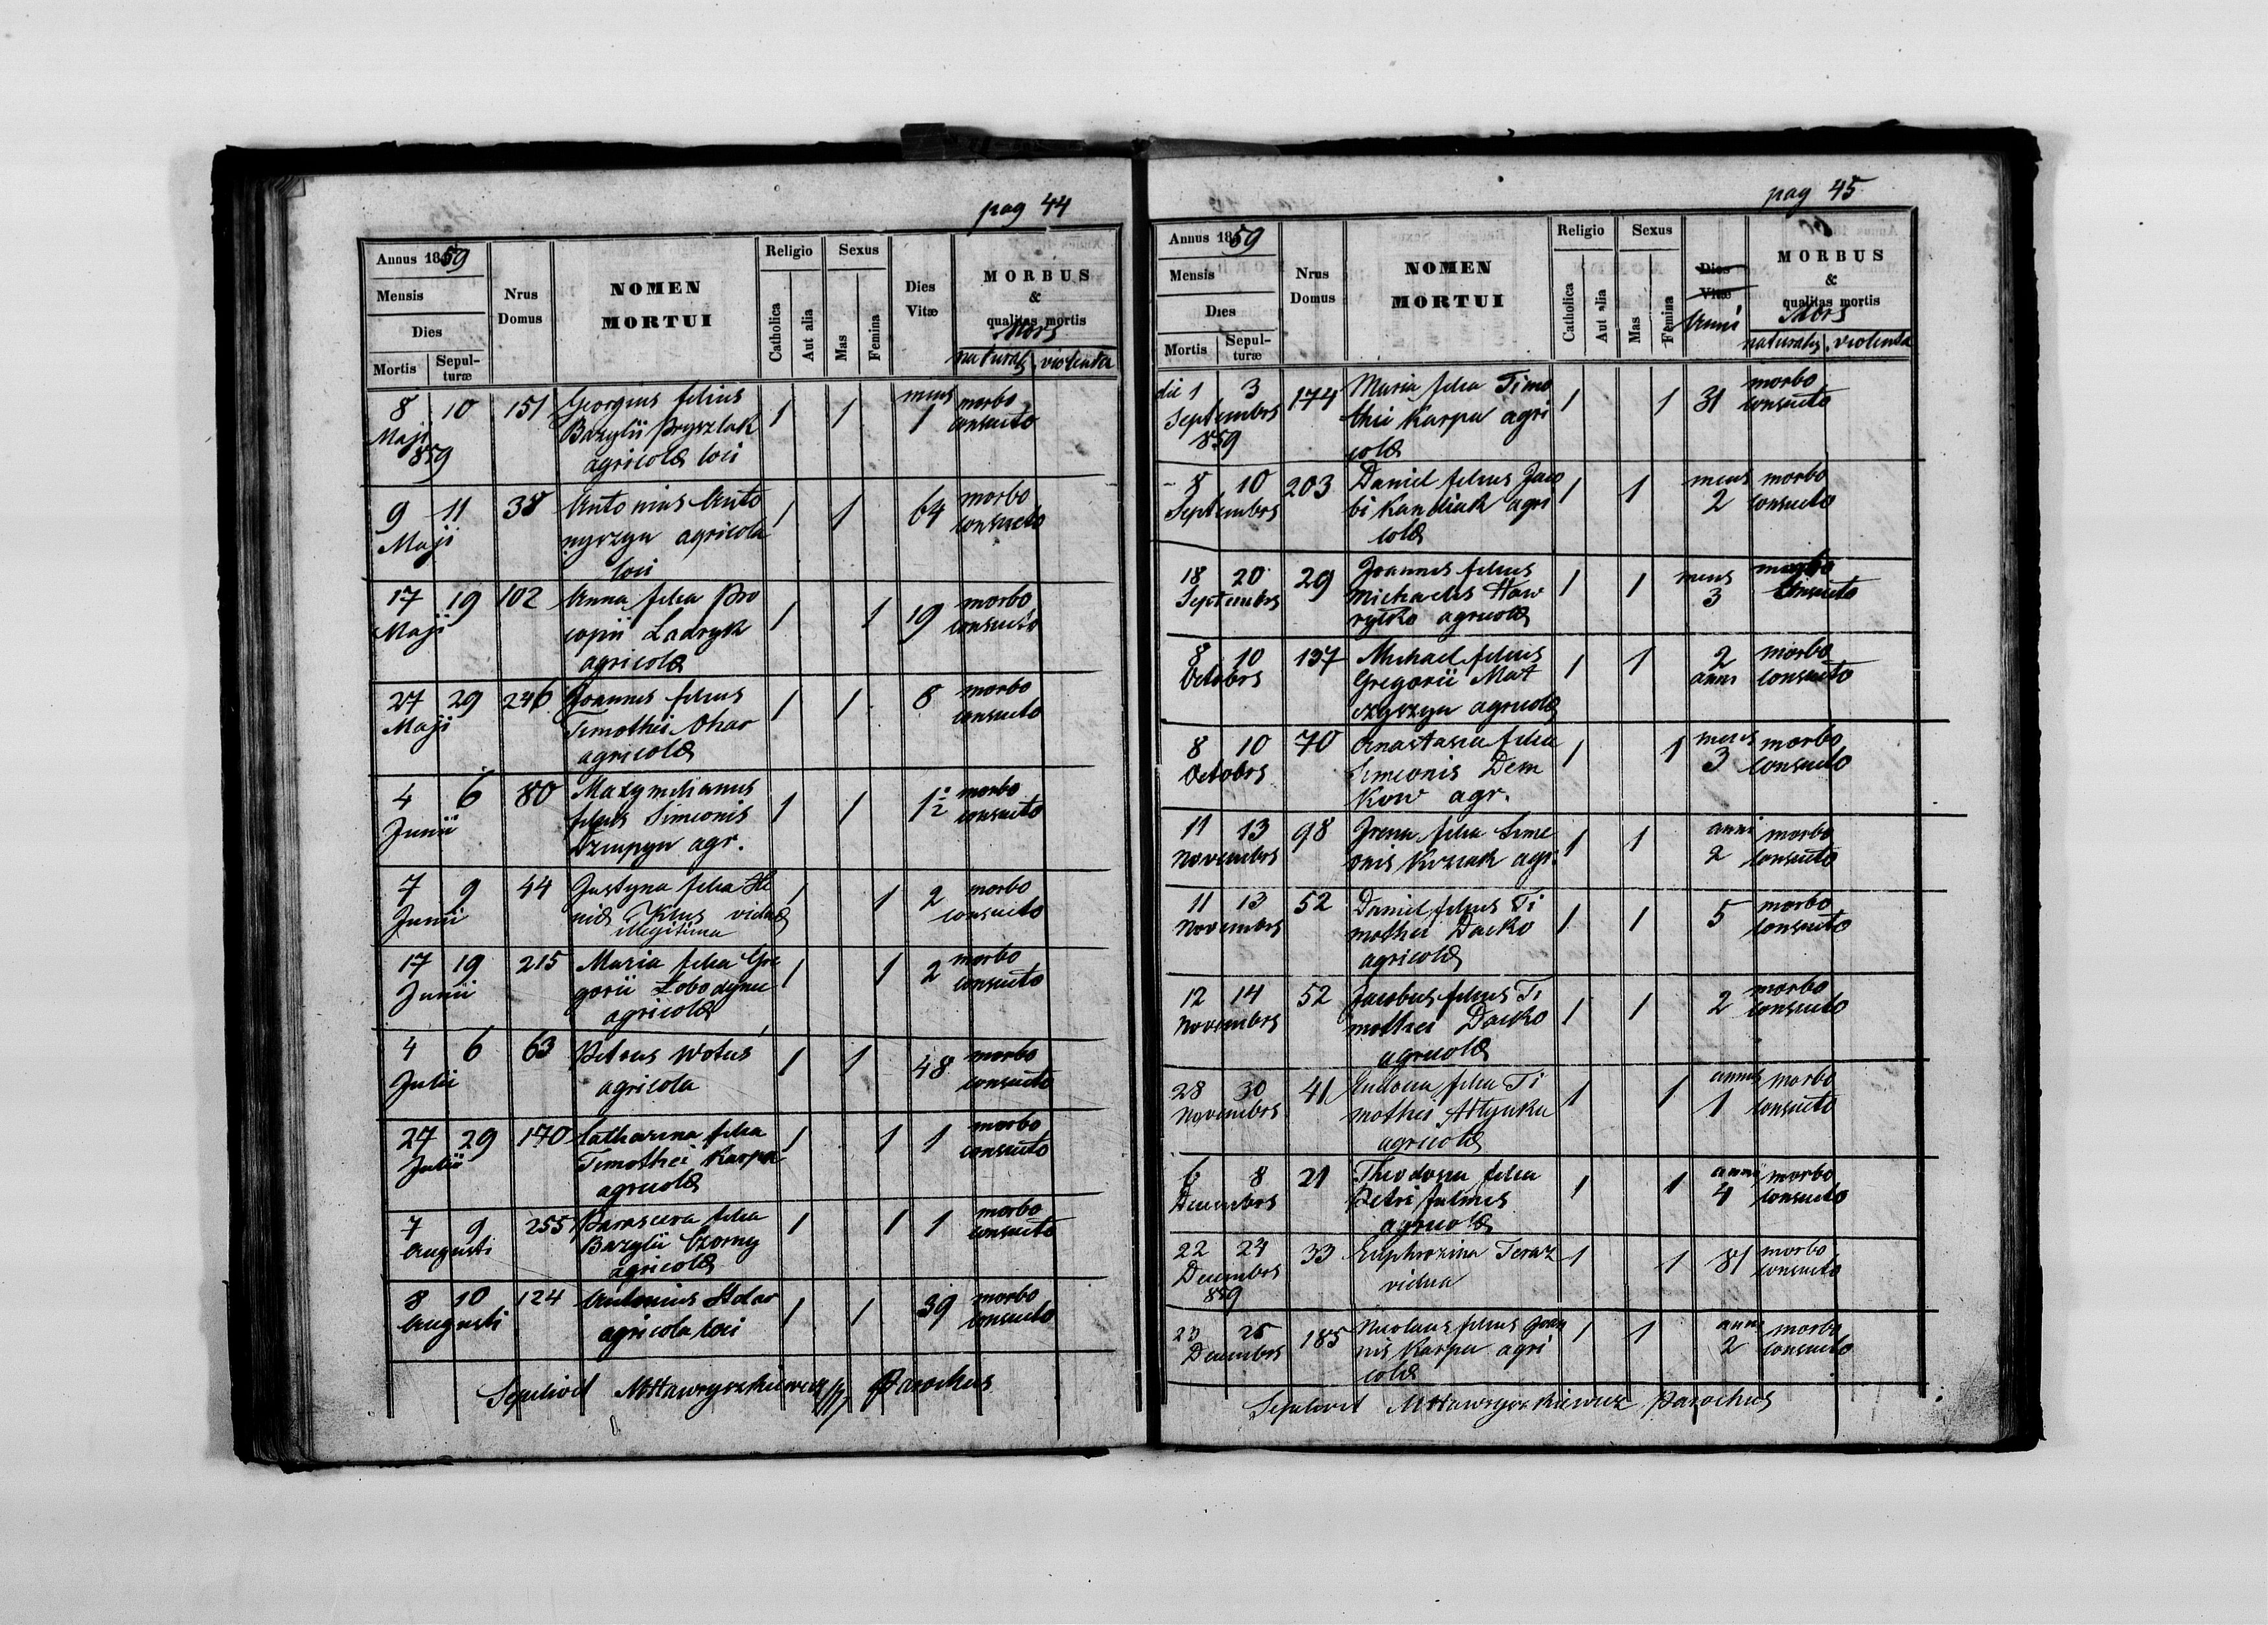 pag 44
Annus 1859
Mensis
Dies
Mortis
Sepul-
turæ
Nrus
Domus
NOMEN
MORTUI
Religio
Catholica
Aut alia
Sexus
Mas
Femina
Dies
Vitæ
MORBUS
&
qualitas mortis
Mors
naturalis violenta
8 10 151 Georgius filius 1 1 mens 1 morbo
Maji Bazylii Pryszlak consueto
859 agricolæ loci
9 11 38 Antonius Anto 1 1 64 morbo
Maji nyszyn agricola consueto
loci
17 19 102 Anna filia Pro 1 1 19 morbo
Maji copii Ladryk consueto
agricolæ
27 29 246 Joannes filius 1 1 8 morbo
Maji Timothei Ohar consueto
agricolæ
4 6 80 Maxymilianus 1 1 1½ morbo
Junii filius Simeonis consueto
agr.
7 9 44 Justyna filia He 1 1 2 morbo
Junii Klus viduæ consueto
illegitima
17 19 215 Maria filia Gre 1 1 2 morbo
Junii gorii Łobodynu consueto
agricolæ
4 6 63 Petrus Wotus 1 1 48 morbo
Julii agricola consueto
27 29 170 Catharina filia 1 1 1 morbo
Julii Timothei Karpa consueto
agricolæ
7 9 255 Parasceva filia 1 1 1 morbo
Augusti Bazylii Czorny consueto
agricolæ
8 10 124 Antonius Stolar 1 1 39 morbo
Augusti agricola loci consueto
Sepelivit MHawryszkiewicz Parochus
pag 45
Annus 1859
Mensis
Dies
Mortis
Sepul-
turæ
Nrus
Domus
NOMEN
MORTUI
Religio
Catholica
Aut alia
Sexus
Mas
Femina
Dies
Vitæ
Anni
MORBUS
&
qualitas mortis
Mors
naturalis violenta
die 1 3 174 Maria filia Timo 1 1 31 morbo
Septembris thei Karpa agri consueto
859 colæ
8 10 203 Daniel filius Jaco 1 1 mens 2 morbo
Septembris bi Kandiak agri consueto
colæ
18 20 29 Joannes filius 1 1 mens 3 morbo
Septembris Michaelis Haw consueto
ryłko agricolæ
8 10 137 Michael filius 1 1 2 morbo
Octobris Gregorii Mat anni consueto
czyszyn agricolæ
8 10 70 Anastasia filia 1 1 mens 3 morbo
Octobris Simeonis Dem consueto
kow agr.
11 13 98 filia Sime 1 1 anni 2 morbo
Novembris onis Kozak agr. consueto
11 13 52 Daniel filius Ti 1 1 5 morbo
Novembris mothei Dacko consueto
agricolæ
12 14 52 Jacobus filius Ti 1 1 2 morbo
Novembris mothei Dacko consueto
agricolæ
28 30 41 Eudocia filia Ti 1 1 annus 1 morbo
Novembris mothei consueto
agricolæ
6 8 21 Theodosia filia 1 1 anni 4 morbo
Decembris Petri consueto
agricolæ
22 24 33 Euphrozina Teraz 1 1 81 morbo
Decembris vidua consueto
859
23 25 185 Nicolaus filius Joan 1 1 anni 2 morbo
Decembris nis Karpa agri consueto
colæ
Sepelivit MHawryszkiewicz Parochus